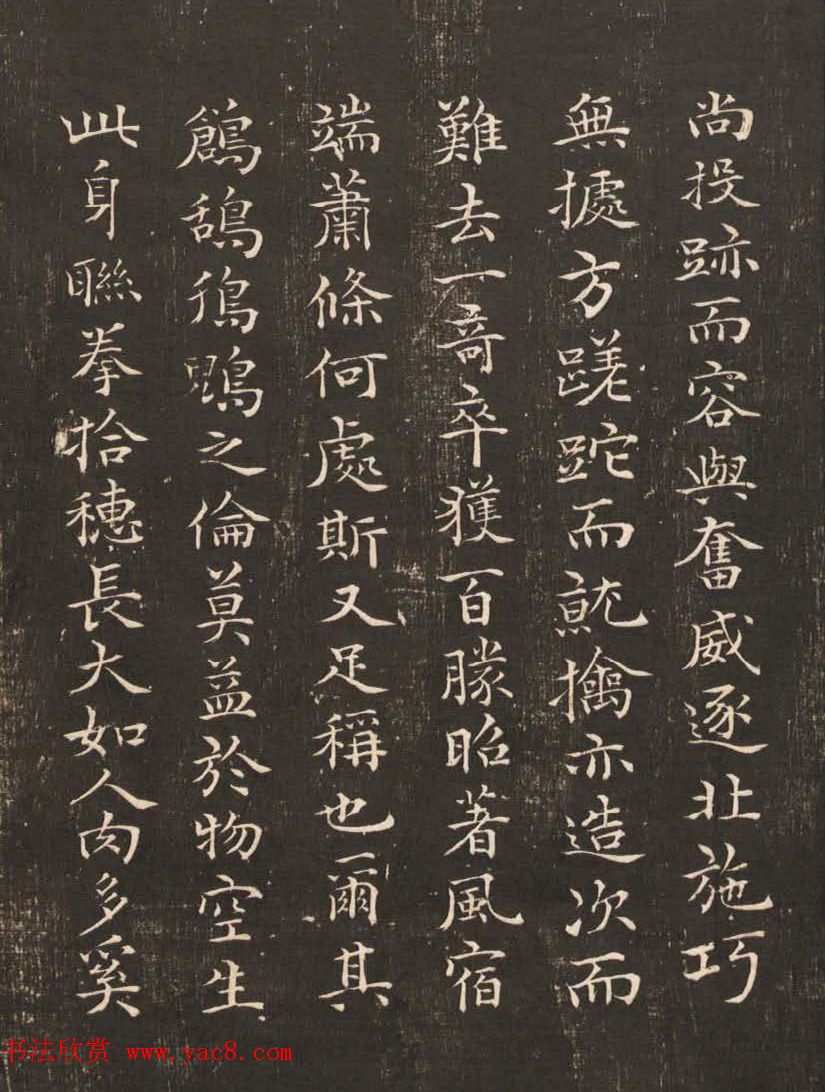 尚投跡而容與奮威逐北施巧
無據方蹉跎而就擒亦造次而
難去一奇卒獲百勝昭著風宿
端蕭條何處斯又足稱也爾其
鶬鴰鳵鶂之倫莫益於物空生
此身聯拳拾穗長大如人肉多奚
书法欣赏 www.yac8.com